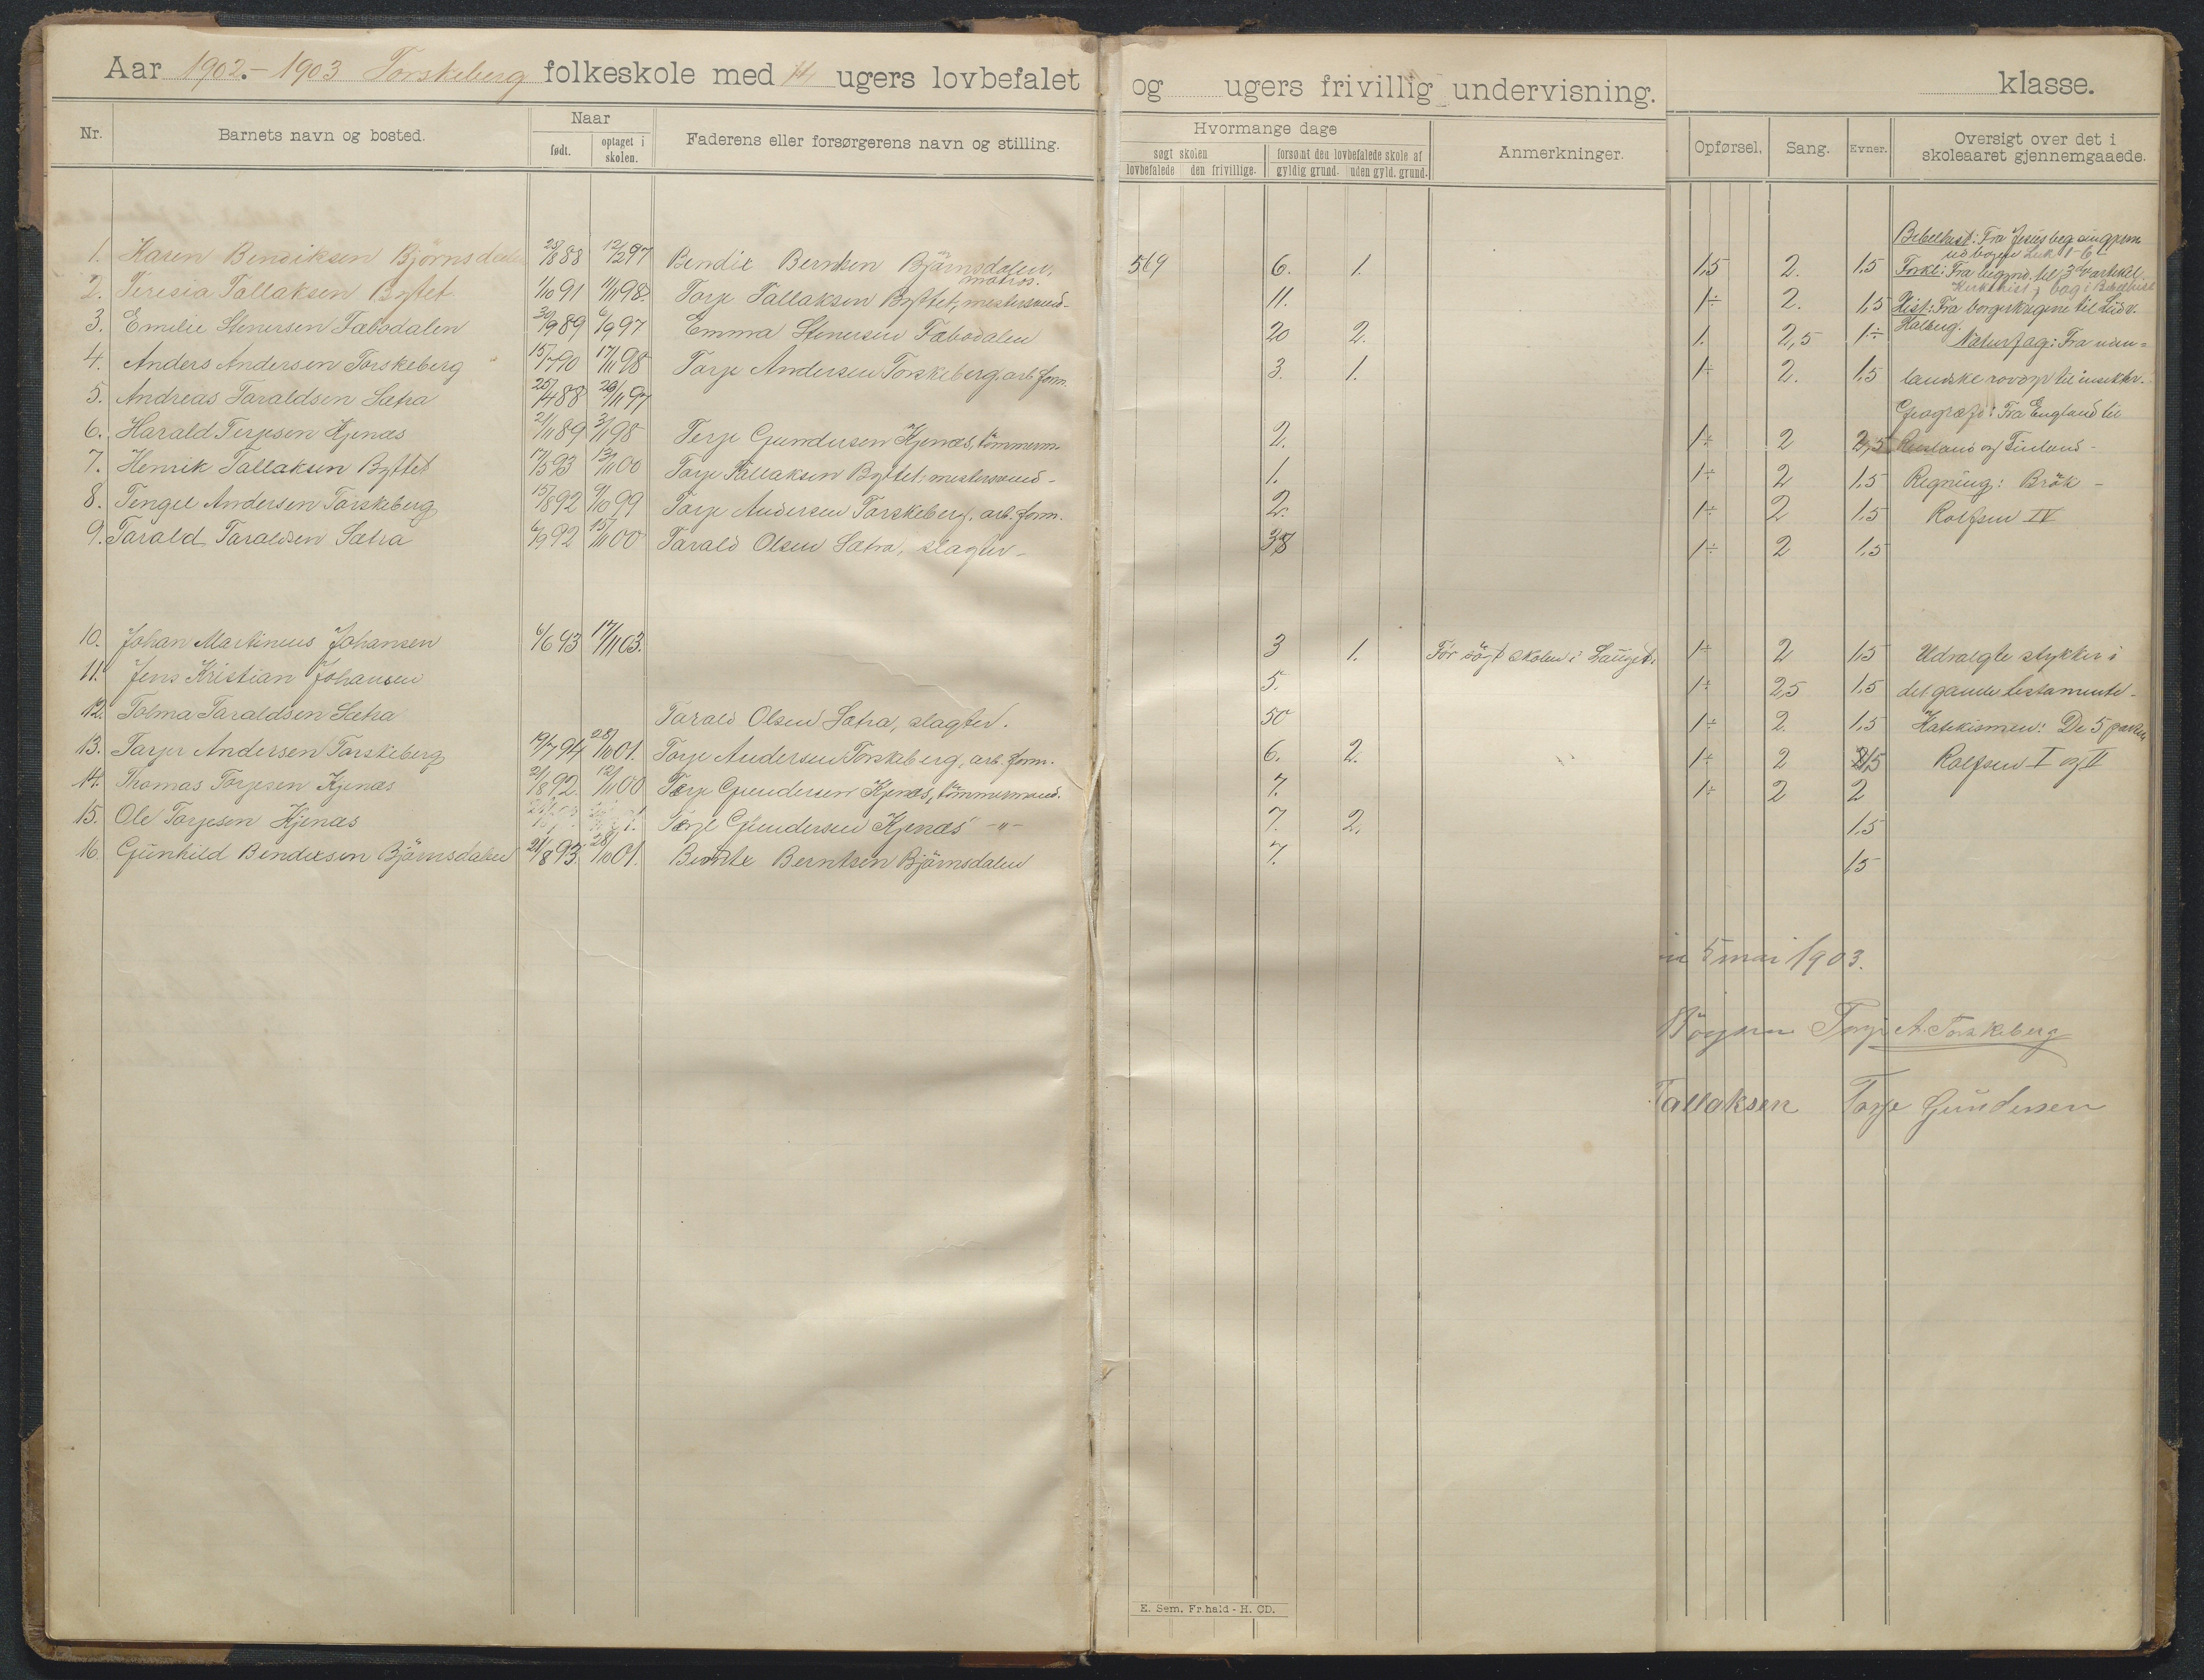 Aar 1902.-1903 Torskeberg folkeskole med 14 ugers lovbefalet og ugers frivillig undervisning. klasse.
Nr. Barnets navn og bosted. Naar født. optaget i skolen. Faderens eller forsørgerens navn og stilling. Hvormange dage søgt skolen lovbefalede den frivillige. forsømt den lovbefalede skole af gyldig grund. uden gyld. grund. Anmerkninger. Opførsel. Sang. Evner. Oversigt over det i skoleaaret gjennemgaaede.
1. Karen Bendiksen Bjørnsdalen 28/8 88 12/2 97 Bendix Berntsen Bjørnsdalen, matros. 569 6. 1. 1,5 2. 1,5 Bibelhist: Fra Jesus beg.
Forkl: Fra begynd. til 3die artikel.
2. Teresia Tallaksen Byttet 1/10 91 11/11 98. Torje Tallaksen Byttet, mestersvend- 11. 1÷ 2. 1,5 Hist: Fra borgerkrigene til Ludv.
Holberg.
3. Emilie Stenersen Fæbodalen 30/9 89 6/9 97 Emma Stenersen Fæbodalen 20 2. 1. 2,5 1÷ Naturfag: Fra uden=
4. Anders Andersen Torskeberg 15/7 90 17/11 98 Torje Andersen Torskeberg, arb. form. 3. 1. 1÷ 2. 1,5 landske rovdyr til insekter.
5. Andreas Taraldsen Sætra 25/4 88 29/11 97 Geografi: Fra England til
6. Harald Terjesen Kjenæs 21/11 89 3/11 98 Terje Gundersen Kjenæs, tømmerm. 2. 1÷ 2 2,5 Rusland og Finland-
7. Henrik Tallaksen Byttet 17/5 93 13/11 00 Torje Tallaksen Byttet, mestersvend- 1. 1÷ 2 1,5 Regning: Brøk -
8. Tengel Andersen Torskeberg 15/8 92 9/10 99 Torje Andersen Torskeberg, arb. form. 2. 1÷ 2 1,5 Rolfsen IV
9. Tarald Taraldsen Sætra 6/9 92 15/11 00 Tarald Olsen Sætra, slagter- 38 1÷ 2 1,5
10. Johan Martinius Johansen 6/6 93 17/11 03. 3 1. Før søgt skolen i Lauget. 1÷ 2 1,5 Udvalgte stykker i
11. Jens Kristian Johansen 5. 1÷ 2,5 1,5 det gamle testamente-
12. Tolma Taraldsen Sætra Tarald Olsen Sætra, slagter. 50 1÷ 2. 1,5 Katekismen: De 5 parter
13. Tarjer Andersen Torskeberg 19/7 94 28/10 01. Torje Andersen Torskeberg, arb. form. 6. 2. 1÷ 2 1,5 Rolfsen I og II
14. Thomas Torjesen Kjenæs 21/8 92. 12/11 00 Terje Gundersen Kjenæs, tømmermand. 7. 1÷ 2 2
15. Ole Torjesen Kjenæs Terje Gundersen Kjenæs -"- 7. 2. 1,5
16. Gunhild Bendixsen Bjørnsdalen 21/8 93. 28/10 01. Bendix Berntsen Bjørnsdalen 7. 1,5
5 mai 1903.
Torje A. Torskeberg
Tallaksen Torje Gundersen
E. Sem. Fr.hald - H. CD.